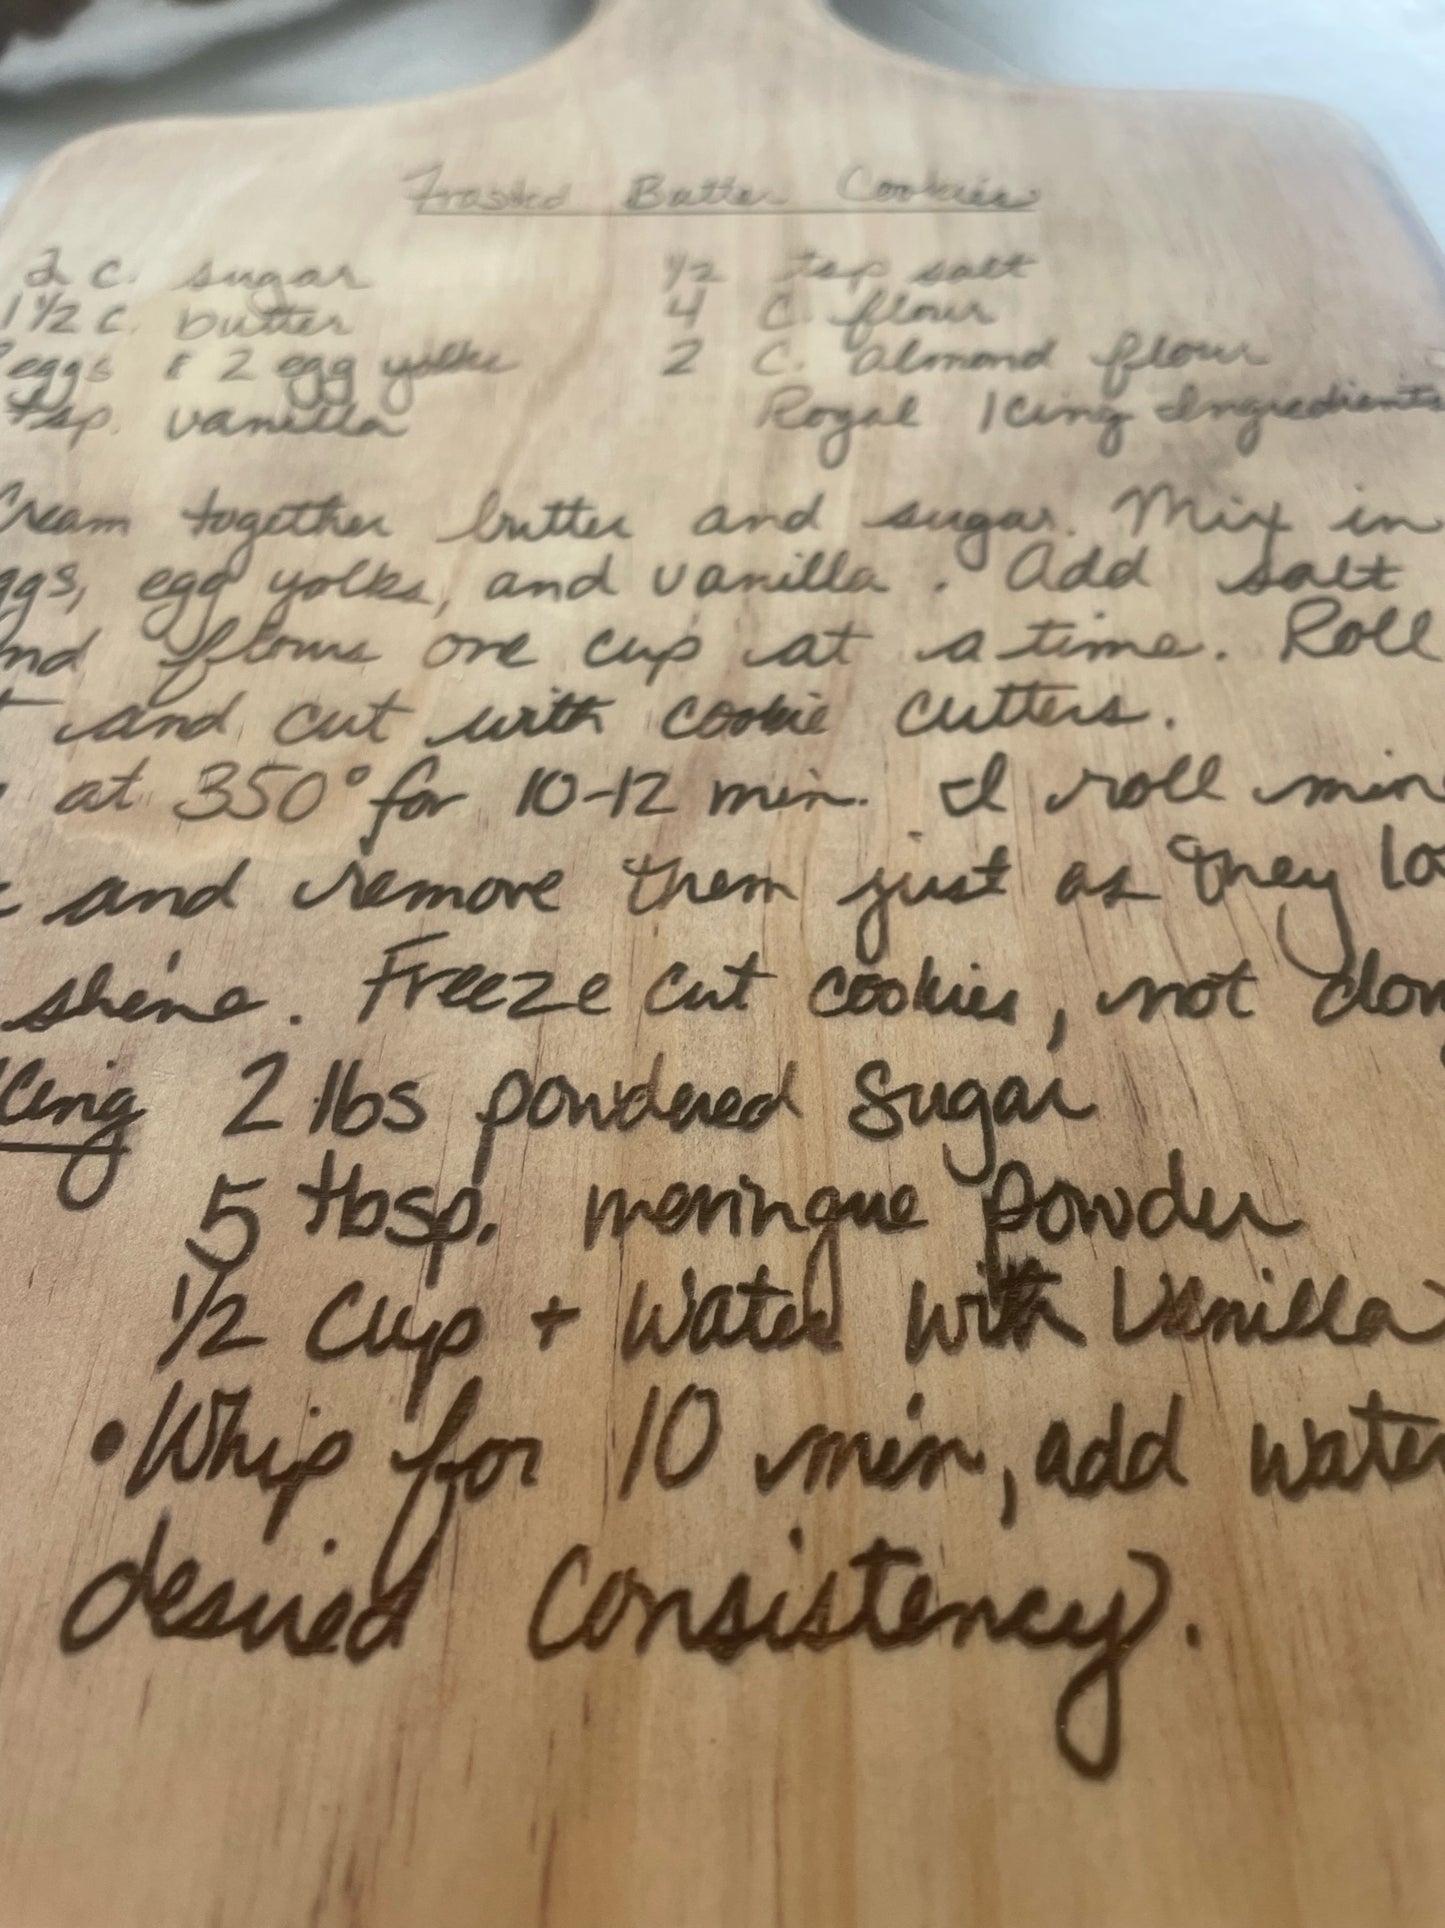 Frosted Butter Cookies
2 c. sugar
1 1/2 c. butter
eggs & 2 egg yolks
tsp. vanilla
1/2 tsp salt
4 C. flour
2 C. almond flour
Royal Icing Ingredients
Cream together butter and sugar. Mix in
eggs, egg yolks, and vanilla. Add salt
and flours one cup at a time. Roll
and cut with cookie cutters.
at 350° for 10-12 min. I roll mine
and remove them just as they
shine. Freeze cut cookies, not
Icing 2 lbs powdered sugar
5 tbsp. meringue powder
1/2 Cup + Water with Vanilla
• Whip for 10 min, add water
desired consistency.